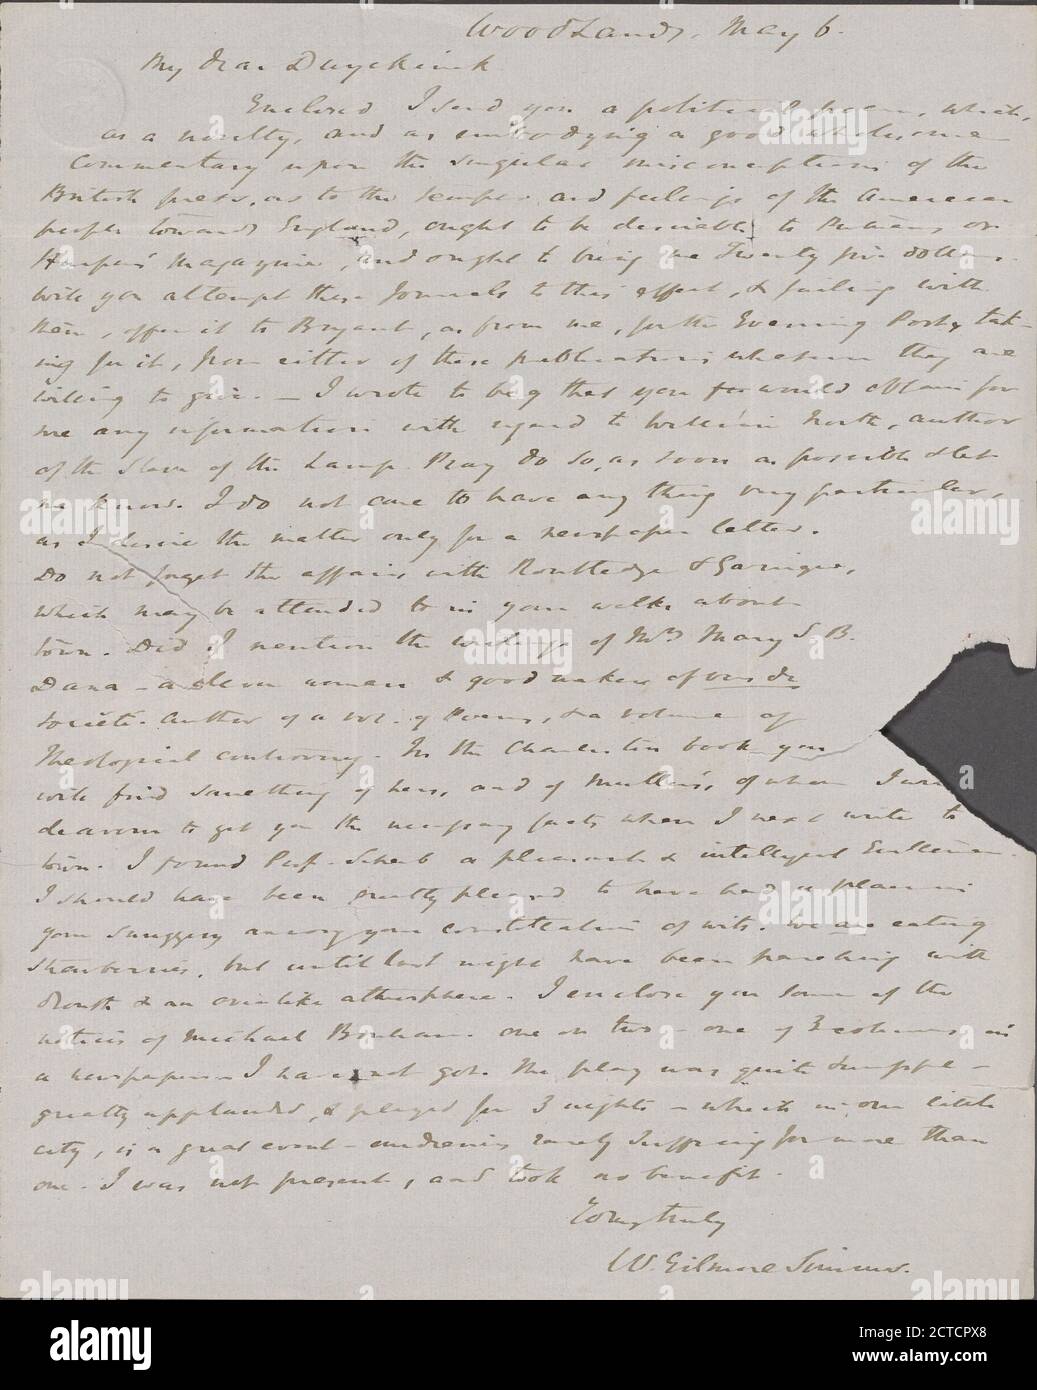 Woodlands, May 6.
My dear Duyckinck
Enclosed I send you a political poem, which,
as a novelty, and as embodying a good wholesome
Commentary upon the singular misconceptions of the
British press, as to the temper and feelings of the American
people towards England, ought to be desirable to Putnam's or
Harper's Magazine, and ought to bring me Twenty five dollars.
Will you attempt these Journals to this effect, & failing with
them, offer it to Bryant, as from me, for the Evening Post, tak-
ing for it, from either of these publications whatever they are
willing to give. — I wrote to beg that you would obtain for
me any information with regard to William North, author
of the Slave of the Lamp. Pray do so, as soon as possible & let
me know. I do not care to have any thing very particular,
as I desire the matter only for a newspaper letter.
Do not forget the affairs with Routledge &
which may be attended to in your walks about
town. Did I mention the writings of Mrs Mary S. B.
Dana — a clever woman & good maker of vers de
société. Author of a vol. of Poems, & a volume of
Theological controversy. In the Charleston book you
will find something of hers, and of of whom I
deavour to get you the necessary facts when I next write to
town. I found Prof. Scherb a pleasant & intelligent Gentleman.
I should have been greatly pleased to have had a place in
your snuggery among your constellation of wits. We are eating
strawberries, but until last night have been parching with
drouth & an ovenlike atmosphere. I enclose you some of the
notices of Michael Bonham. one or two — one of 3 columns in
a newspaper — I have not got. The play was quite successful —
greatly applauded, & played for 3 nights — which in our little
city, is a great event — audiences rarely sufficing for more than
one. I was not present, and took no benefit.
Yours truly
W. Gilmore Simms.
alamy
alamy
Image ID: 2CTCPX8
www.alamy.com